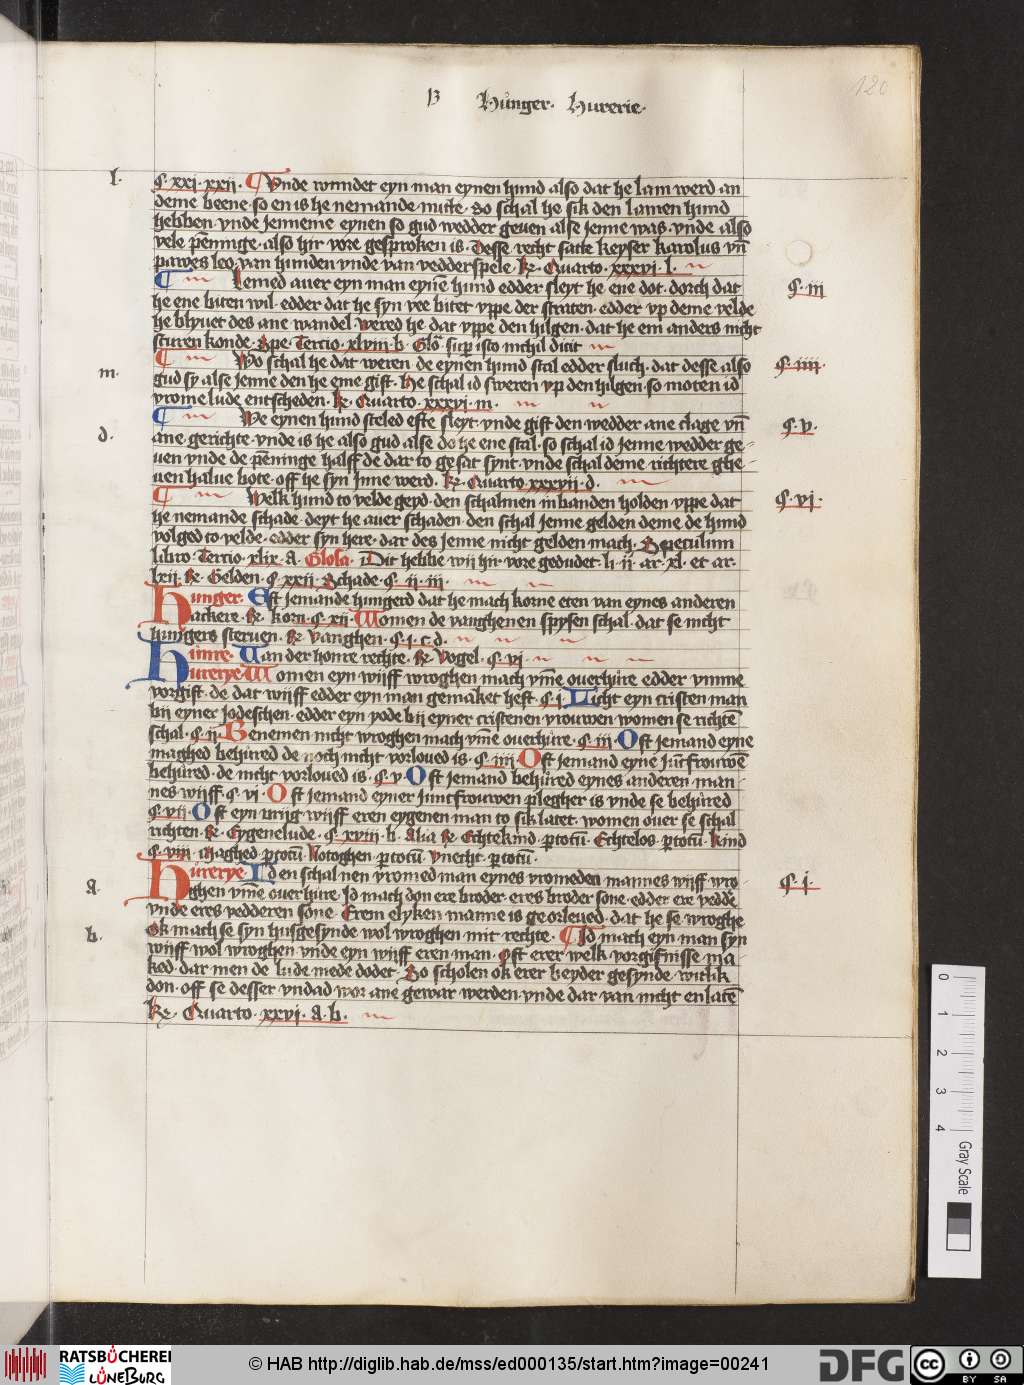 B Hůnger. Hurerie.
120
l.
§. xxi. xxij. Unde wundet eyn man eynen hund also dat he lam werd an
deme beene. so en is he nemande nutte. So schal he sik den lamen hund
hebben. vnde jenneme eynen so gud wedder geuen alse jenne was. vnde also
vele pēnnige. also hir vore gesproken is. Desse recht satte keyser karolus vn̄
pawes leo. van hunden vnde van vedderspele. Re. Quarto. xxxvi. l.
Lemed auer eyn man eyne hund edder sleyt he ene dot. dorch dat
§. iij
he ene biten wil. edder dat he syn vee bitet vppe der straten. edder vp deme velde
he blyuet des ane wandel. Wered he dat vppe den hilgen. dat he em anders nicht
sturen konde. Spe. Tercio. xlviii. b. Glo. sup isto nichil dicit
m.
Wo schal he dat weren de eynen hund stal edder sluch. dat desse also
§. iiii.
gud sy alse jenne den he eme gift. He schal id sweren vp den hilgen. so moten id
vrome lude entscheden. Re. Quarto. xxxvi. m.
d.
We eynen hund steled efte sleyt. vnde gift den wedder ane clage vn̄
§. v.
ane. gerichte. vnde is he also gud alse do he ene stal. so schal id jenne wedder ge-
uen vnde de pēninge halff de dar to gesat synt. vnde schal deme richtere ghe-
uen halue bote. off he syn Inne werd. Re. Quarto. xxxvii. d.
Welk hund to velde geyd. den schalmen in banden holden. vppe dat
§. vi.
he nemande schade. deyt he auer schaden. den schal jenne gelden deme de hund
volged to velde. edder syn here. dar des jenne nicht gelden mach. Speculum
libro. Tercio. xlix. a. Glosa. Dit hebbe wij hir vore gedudet. li. ii. ar. xl. et ar.
lxii. Re. Gelden. §. xxii. Schade. §. ii. iii.
Hunger. Est jemande hungerd dat he mach korne eten van eynes anderen
ackere. Re. korn. §. xii. Women de vanghenen spysen schal. dat se nicht
hungers steruen. Re. Vanghen. §. i. c. d.
Hunre. Van der honre rechte. Re. Vogel. §. vi.
Hurerye. Women eyn wijff wroghen mach vm̄e ouerhure. edder vmme
vorgift. de dat wijff edder eyn man gemaket heft. §. i. Licht eyn cristen man
bij eyner jodeschen. edder eyn yode bij eyner cristenen vrouwen. women se richtē
schal. §. ii. Benemen nicht wroghen mach vm̄e ouerhůre. §. iii. Oft jemand eyne
maghed behůred de noch nicht vorloued is. §. iiii. Oft jemand eyne jūcfrouwē
behůred. de nicht vorloued is. §. v. Oft jemand behůred eynes anderen man-
nes wijff. §. vi. Oft jemand eyner juncfrouwen plegher is vnde se behůred
§. vii. Oft eyn vrijg wijff eren eygenen man to sik latet. women ouer se schal
richten. Re. Eygenelude. §. xviii. b. Alia Re. Echtekind. p totū. Echtelos. p totū. kind
§. viii. Maghed. p totū. Notoghen. p totū. Vnecht. p totū.
a.
Hůrerye. Iden schal nen vromed man eynes vromeden mannes wijff wro-
§. i.
ghen vm̄e ouerhůre. Id mach don ere broder. eres broder sone. edder ere veddē
vnde eres vedderen sone. Erem elyken manne is georleued. dat he se wroghe
b.
Ok mach se syn husgesynde wol wroghen mit rechte. Id mach eyn man syn
wijff wol wroghen. vnde eyn wijff eren man. Oft erer welk vorgifnisse ma
ked. dar men de lude mede dodet. So scholen ok erer beyder gesynde. witlik
don. off se desser vndad wor ane gewar werden. vnde dar van nicht enlatē
Re. Quarto. xxvi. a. b.
0 1 2 3 4
Gray Scale
RATSBÜCHEREI LÜNEBURG
© HAB http://diglib.hab.de/mss/ed000135/start.htm?image=00241
DFG
cc BY SA